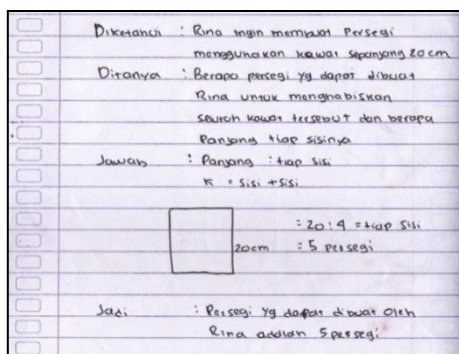 Diketahui : Rina ingin membuat Persegi
menggunakan kawat sepanjang 20 cm
Ditanya : Berapa persegi yg dapat dibuat
Rina untuk menghabiskan
seluruh kawat tersebut dan berapa
Panjang tiap sisinya
Jawab : Panjang : tiap sisi
K = sisi + sisi
= 20 : 4 = tiap sisi
20cm = 5 persegi
Jadi : Persegi yg dapat dibuat oleh
Rina adalah 5 persegi